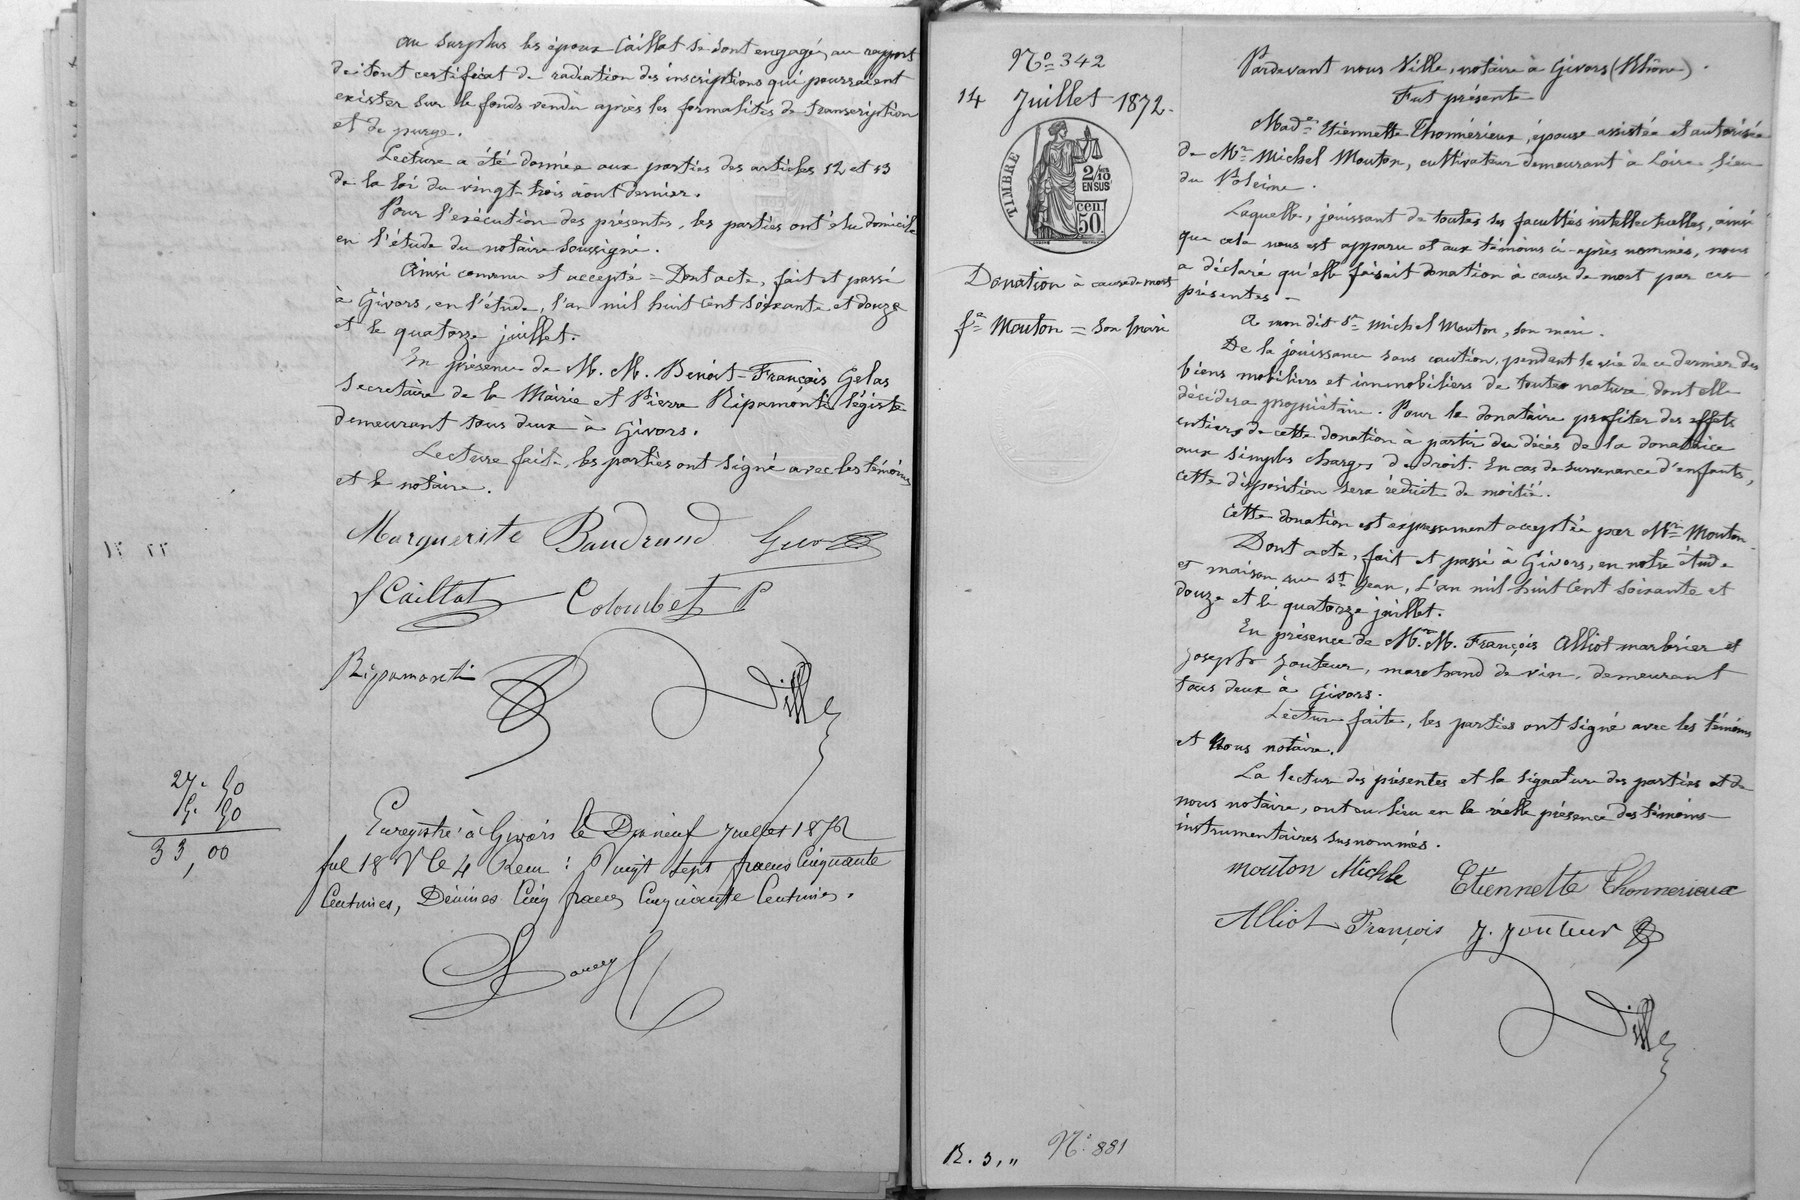 au surplus les époux Caillat se sont engagés au rapport
de tout certificat de radiation des inscriptions qui pourraient
exister sur le fonds vendu après les formalités de transcription
et de purge.
Lecture a été donnée aux parties des articles 12 et 13
de la loi du vingt-trois août dernier.
Pour l'exécution des présentes, les parties ont élu domicile
en l'étude du notaire soussigné.
Ainsi convenu et accepté = Dont acte, fait et passé
à Givors, en l'étude, l'an mil huit cent soixante et douze
et le quatorze juillet.
En présence de M. M. Benoit-François Gelas
secrétaire de la Mairie et Pierre Ripamonti légiste
demeurant tous deux à Givors.
Lecture faite, les parties ont signé avec les témoins
et le notaire.
Marguerite Baudrand
Caillat Colombet P
Ripamonti Ville
27. 50
5. 50
33,00
Enregistré à Givors le Dix neuf Juillet 1872
fol 18 V c 4 Reçu : Vingt sept francs Cinquante
Centimes, Décimes Cinq francs Cinquante Centimes.
No 342
14 Juillet 1872.
TIMBRE
2/10 EN SUS
50 cen.
Donation à cause de mort
fe Mouton = son mari
R. 3,"
No 881
Pardevant nous Ville, notaire à Givors (Rhône).
Fut présente
Made Etiennette Thomérieux, épouse assistée et autorisée
de Mr Michel Mouton, cultivateur demeurant à Loire lieu
du
Laquelle, jouissant de toutes ses facultés intellectuelles, ainsi
que cela nous est apparu et aux témoins ci-après nommés, nous
a déclaré qu'elle faisait donation à cause de mort par ces
présentes –
A mon dit Sr Michel Mouton, son mari.
De la jouissance sans caution, pendant la vie de ce dernier des
biens mobiliers et immobiliers de toute nature dont elle
décédera propriétaire. Pour le donataire profiter des effets
entiers de cette donation à partir du décès de la donatrice
aux simples charges de droit. En cas de survenance d'enfants,
cette disposition sera réduite de moitié.
Cette donation est expressement acceptée par Mr Mouton.
Dont acte, fait et passé à Givors, en notre étude
et maison rue St Jean, L'an mil huit cent soixante et
douze et le quatorze juillet.
En présence de Mr. M. François Alliot marbrier et
Joseph Jouteur, marchand de vin, demeurant
tous deux à Givors.
Lecture faite, les parties ont signé avec les témoins
et Nous notaire.
La lecture des présentes et la signature des parties et de
nous notaire, ont eu lieu en la réelle présence des témoins
instrumentaires susnommés.
mouton Michle Etiennette Thonnerieux
Alliot François J. Jouteur
Ville